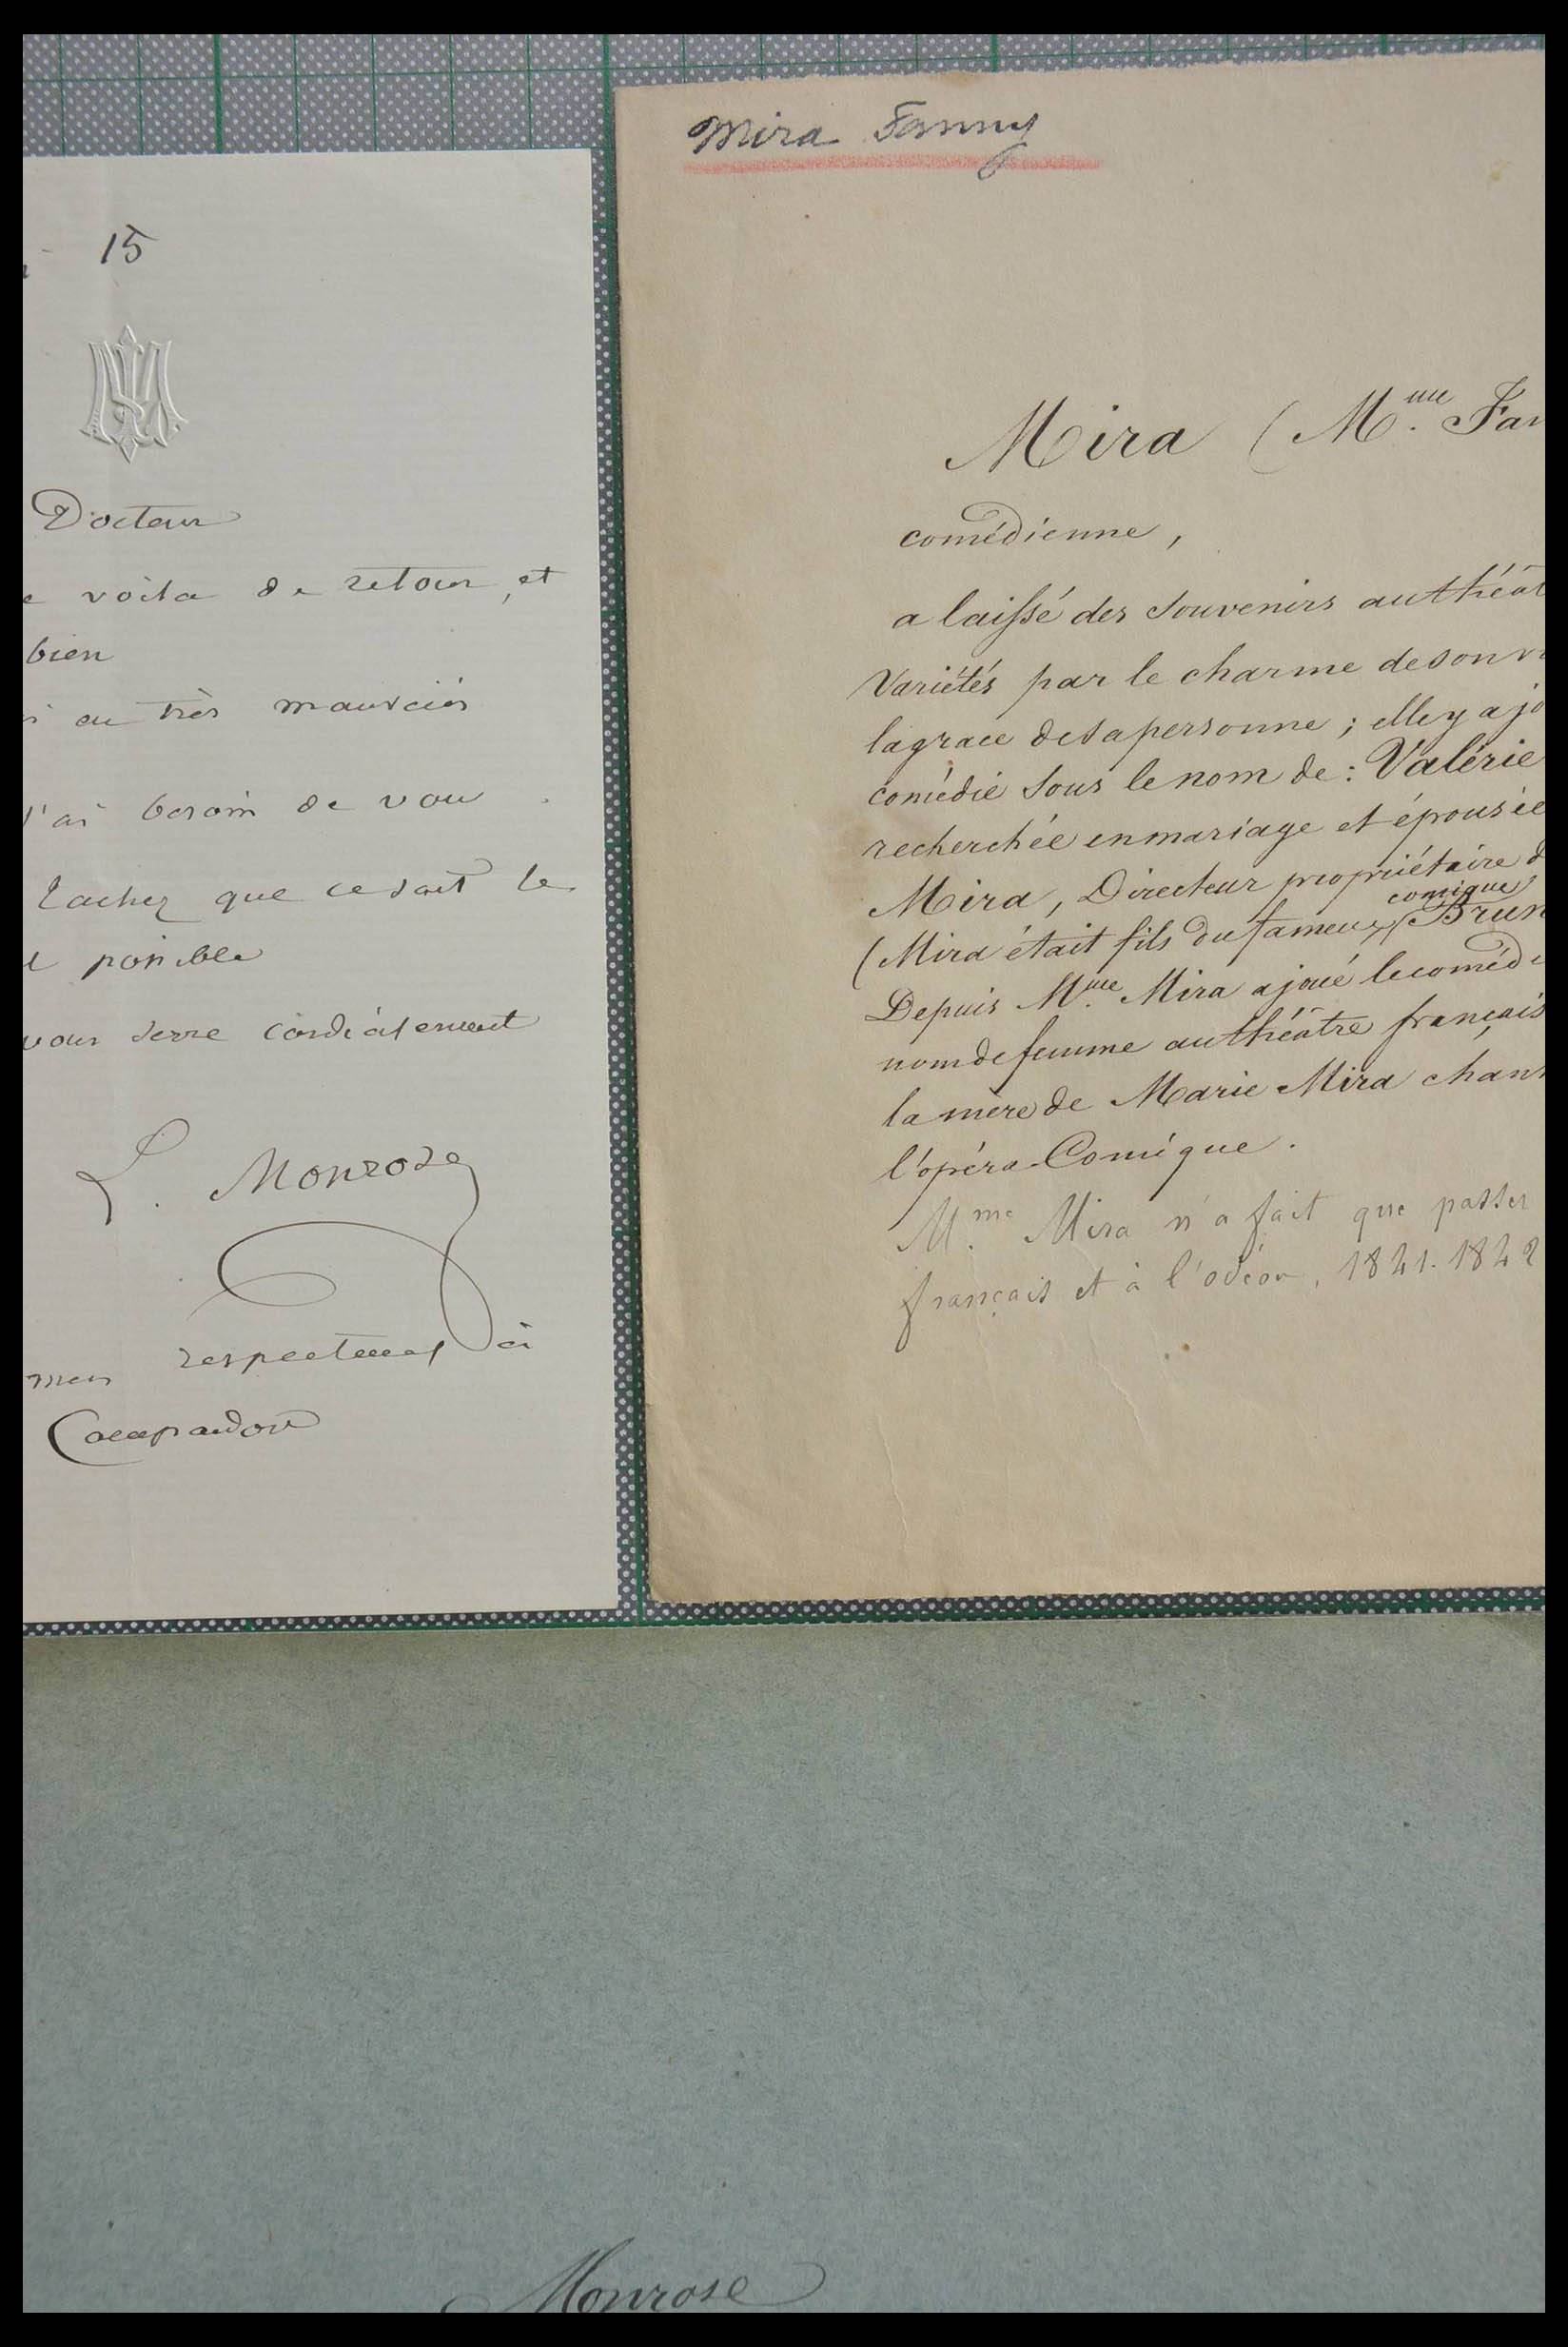 15
Docteur
voila de retour, et
bien
au très mauvais
j'ai besoin de vous.
Tachez que ce soit le
possible
vous serre cordialement
L. Monrose
mes respectueux à
Campardon
Mira Fanny
Mira (Mme Fan
comédienne,
a laissé des souvenirs au théat
Variétés par le charme de son
la grace de sa personne ; elle y a jo
comédie sous le nom de : Valérie
recherchée en mariage et épousée
Mira, Directeur propriétaire d
comique
(Mira était fils du fameux Brun
Depuis Mme Mira a joué le coméd
nom de femme au théâtre français,
la mère de Marie Mira chan
l'opéra-Comique.
Mme Mira n'a fait que passer
français et à l'odéon, 1841-1842
Monrose